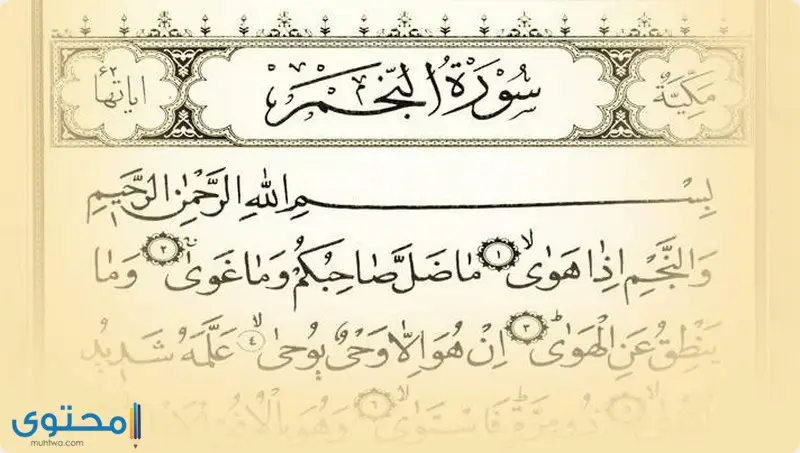 مَكِّيَّةٌ سُورَةُ النَّجْمِ اٰيَاتُهَا ٦٢
بِسْمِ اللّٰهِ الرَّحْمٰنِ الرَّحِيمِ
وَالنَّجْمِ اِذَا هَوٰىۙ ١ مَا ضَلَّ صَاحِبُكُمْ وَمَا غَوٰىۚ ٢ وَمَا
يَنْطِقُ عَنِ الْهَوٰىۜ ٣ اِنْ هُوَ اِلَّا وَحْيٌ يُوحٰىۙ ٤ عَلَّمَهُ شَدِيدُ
ذُو مِرَّةٍۜ فَاسْتَوٰىۙ ٦ وَهُوَ بِالْاُفُقِ
محتوى
muhtwa.com